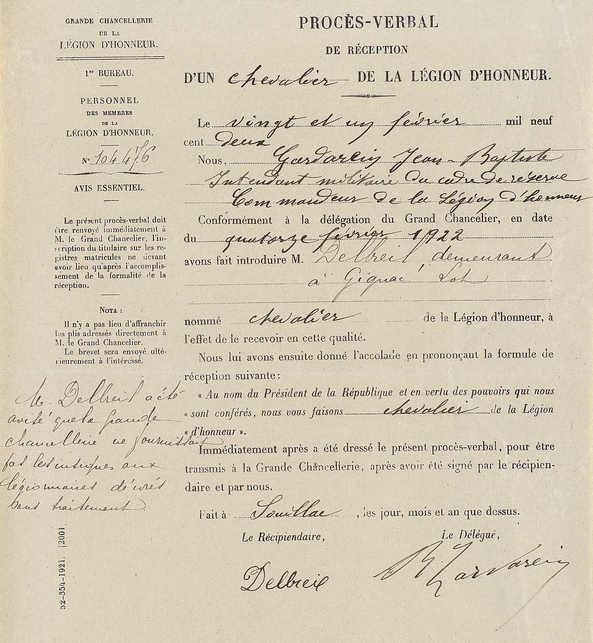 GRANDE CHANCELLERIE
DE LA
LÉGION D'HONNEUR.
1er BUREAU.
PERSONNEL
DES MEMBRES
DE LA
LÉGION D'HONNEUR.
N° 104.476
AVIS ESSENTIEL.
Le présent procès-verbal doit
être renvoyé immédiatement à
M. le Grand Chancelier, l'in-
scription du titulaire sur les re-
gistres matricules ne devant
avoir lieu qu'après l'accomplis-
sement de la formalité de la
réception.
NOTA :
Il n'y a pas lieu d'affranchir
les plis adressés directement à
M. le Grand Chancelier.
Le brevet sera envoyé ulté-
rieurement à l'intéressé.
M. Delbreil a été
avisé que la grande
chancellerie ne fournissait
pas les insignes aux
légionnaires décorés
sans traitement
52-354-1921. [200]
PROCÈS-VERBAL
DE RÉCEPTION
D'UN chevalier DE LA LÉGION D'HONNEUR.
Le vingt et un février mil neuf
cent deux
Nous, Jean-Baptiste
Intendant militaire du cadre de réserve
Commandeur de la Légion d'honneur
Conformément à la délégation du Grand Chancelier, en date
du quatorze février 1922
avons fait introduire M. Delbreil, demeurant
à Gignac Lot
nommé chevalier de la Légion d'honneur, à
l'effet de le recevoir en cette qualité.
Nous lui avons ensuite donné l'accolade en prononçant la formule de
réception suivante :
« Au nom du Président de la République et en vertu des pouvoirs qui nous
« sont conférés, nous vous faisons chevalier de la Légion
« d'honneur ».
Immédiatement après a été dressé le présent procès-verbal, pour être
transmis à la Grande Chancellerie, après avoir été signé par le récipien-
daire et par nous.
Fait à Souillac, les jour, mois et an que dessus.
Le Récipiendaire, Le Délégué,
Delbreil